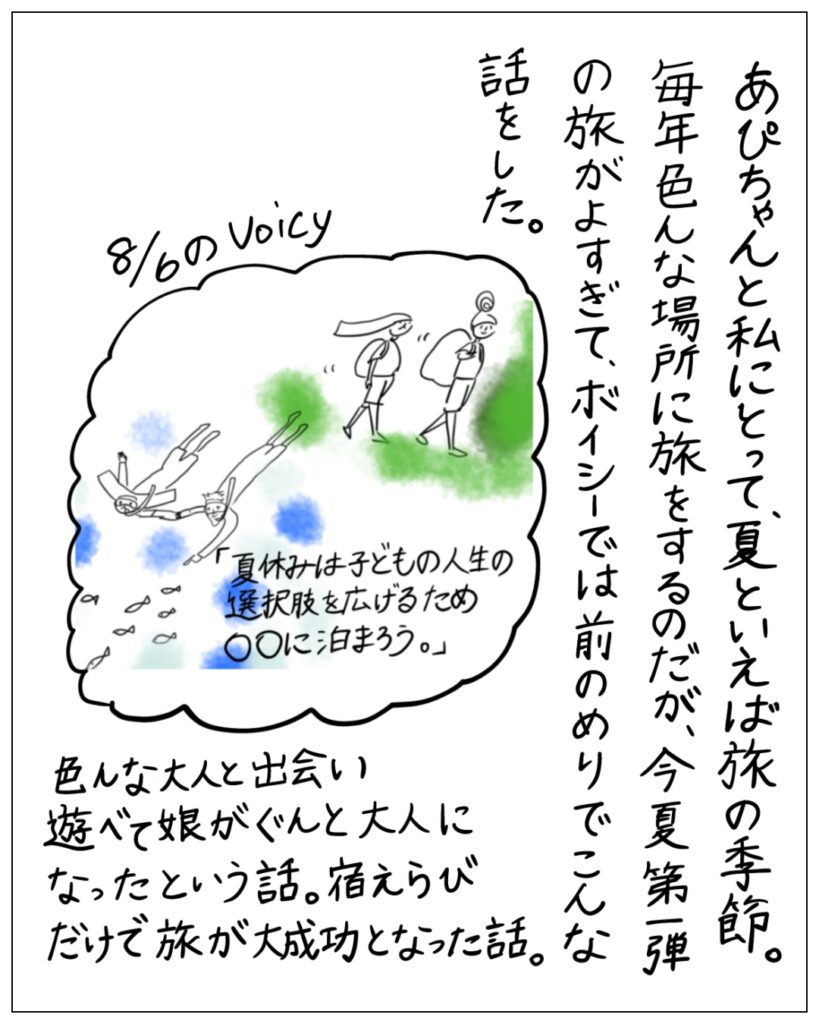 あぴちゃんと私にとって、夏といえば旅の季節。
毎年色んな場所に旅をするのだが、今夏第一弾
の旅がよすぎて、ボイシーでは前のめりでこんな
話をした。
8/6のVoicy
「夏休みは子どもの人生の
選択肢を広げるため
〇〇に泊まろう。」
色んな大人と出会い
遊べて娘がぐんと大人に
なったという話。宿えらび
だけで旅が大成功となった話。